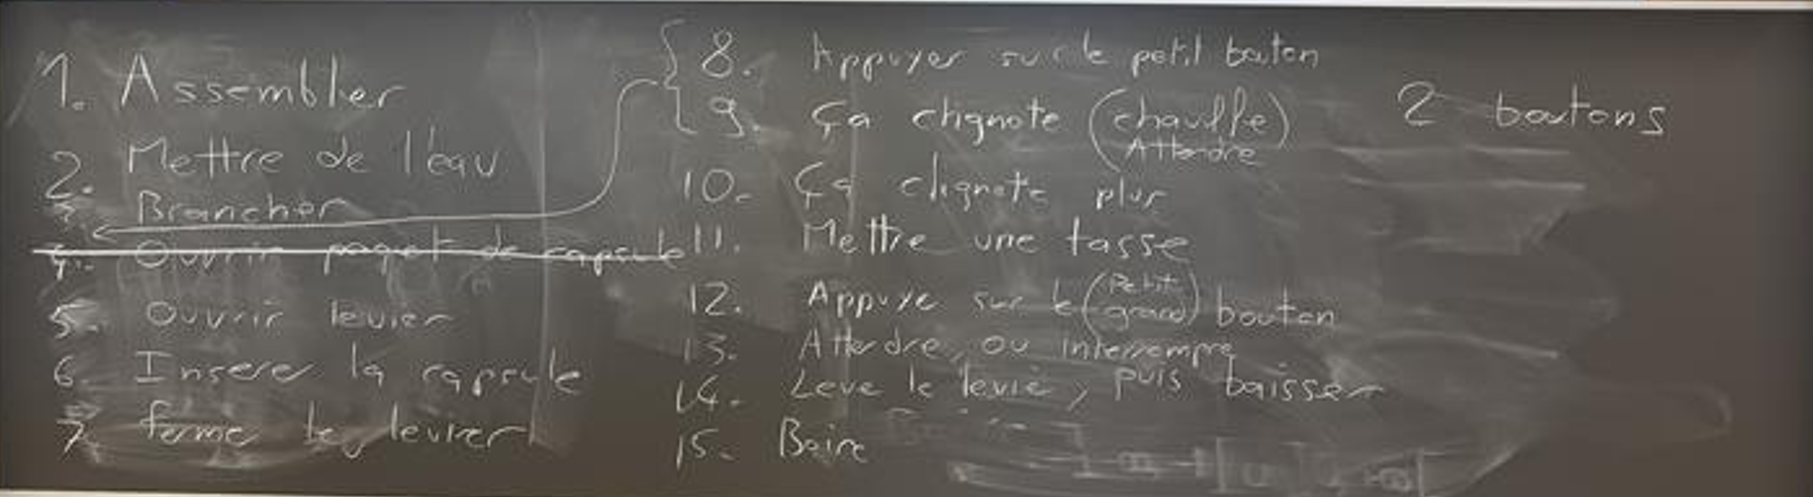 1. Assembler
2. Mettre de l'eau
3. Brancher
4. Ouvrir paquet de capsule
5. Ouvrir levier
6. Inserer la capsule
7. ferme le levier
8. Appuyer sur le petit bouton
9. Ça clignote (chauffe)
Attendre
10. Ça clignote plus
11. Mettre une tasse
12. Appuye sur le (Petit
grand) bouton
13. Attendre, ou interrompre
14. Leve le levie, puis baisser
15. Boire
2 boutons